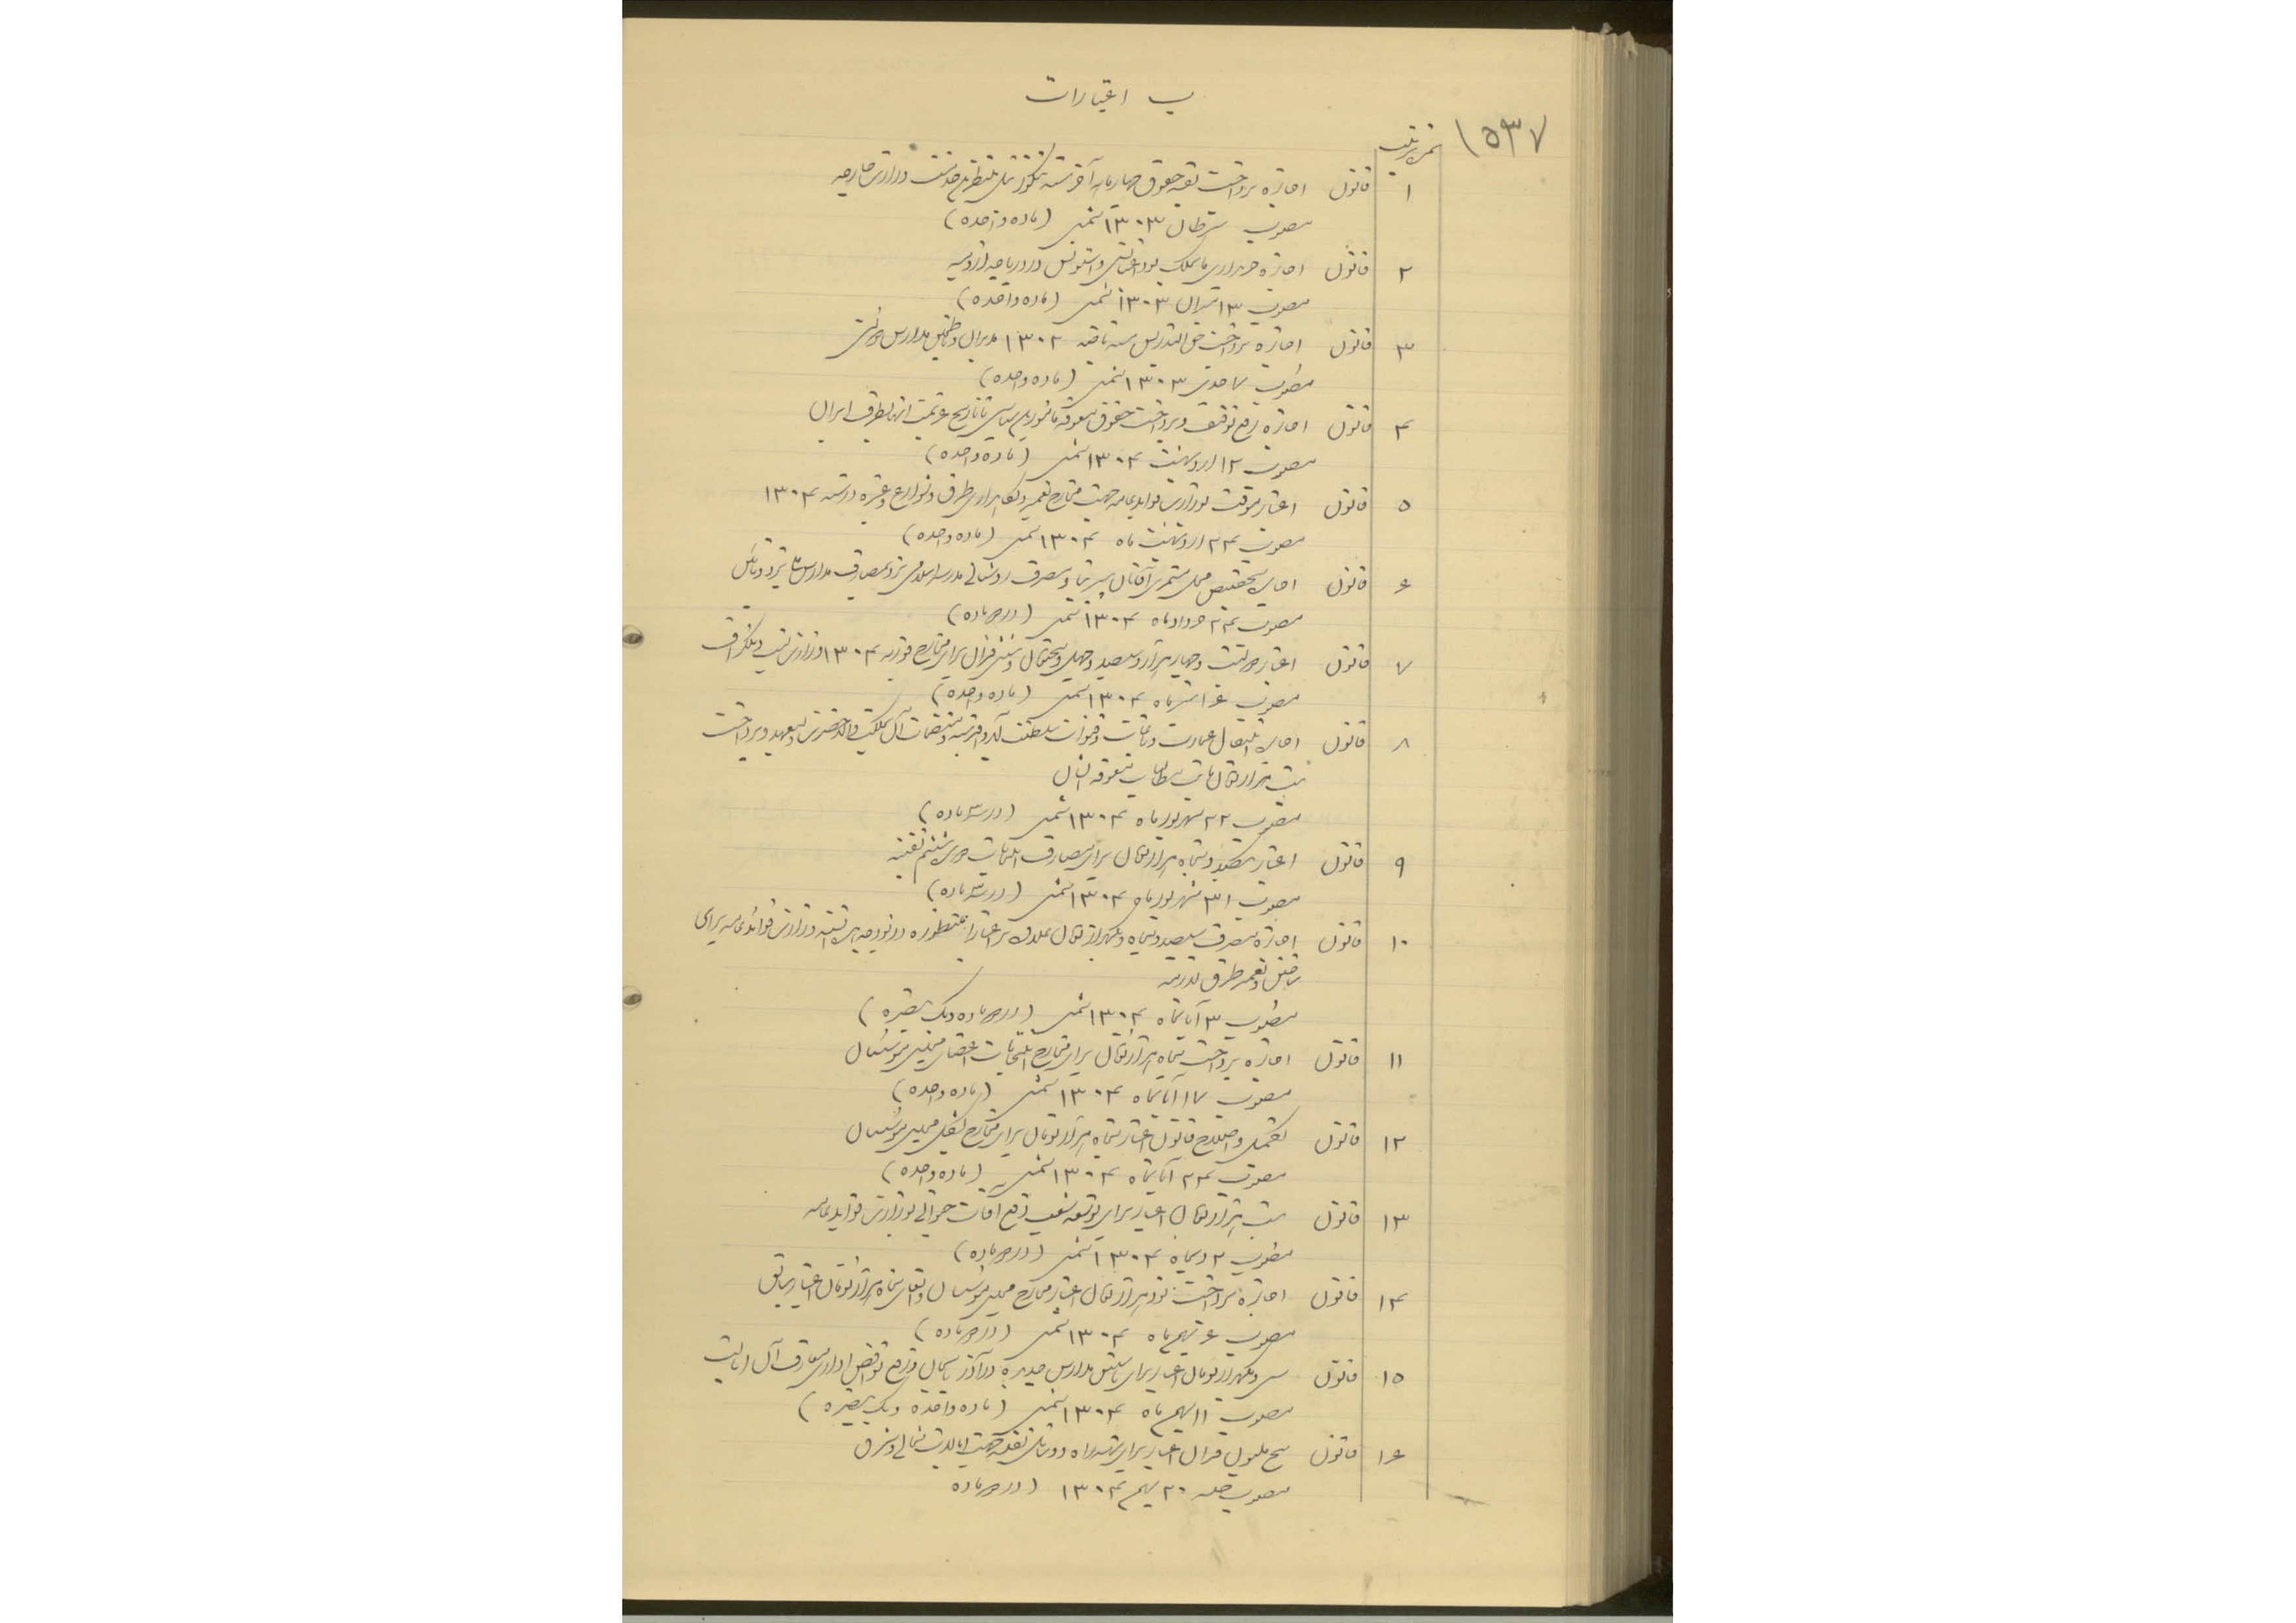 ب اعتبارات
۱۵۳۷
نمره ترتیب
۱ قانون اجازه پرداخت بقیه حقوق چهارماهه آخر سنه منتظرین خدمت وزارت خارجه
مصوب سرطان ۱۳۰۳ شمسی (ماده واحده)
۲ قانون اجازه خریداری مایملک در دریاچه ارومیه
مصوب ۱۳ میزان ۱۳۰۳ شمسی (ماده واحده)
۳ قانون اجازه پرداخت حق التدریس سنه ماضیه ۱۳۰۲ مدیران و معلمین مدارس دولتی
مصوب ۷ جدی ۱۳۰۳ شمسی (ماده واحده)
۴ قانون اجازه رفع توقیف و پرداخت حقوق معوقه مامورین سیاسی تا تاریخ عزیمت آنها بطرف ایران
مصوب ۱۲ اردیبهشت ۱۳۰۴ شمسی (ماده واحده)
۵ قانون اعتبار موقت بوزارت فواید عامه جهت مخارج تعمیر و نگاهداری طرق و شوارع و غیره در سنه ۱۳۰۴
مصوب ۲۴ اردیبهشت ماه ۱۳۰۴ شمسی (ماده واحده)
۶ قانون اجازه تخصیص محل مستمری و مصرف روشنائی مدرسه اسلامی یزد بمصارف مدارس یزد و نائین
مصوب ۲۴ خرداد ماه ۱۳۰۴ شمسی (در دو ماده)
۷ قانون اعتبار دویست و چهار هزار و سیصد و چهل و پنج تومان و شش قران برای مخارج فوریه ۱۳۰۴ وزارت پست و تلگراف
مصوب ۱۶ تیر ماه ۱۳۰۴ شمسی (ماده واحده)
۸ قانون اجازه انتقال عمارت و باغات و قنوات سلطنت آباد و اقدسیه و متعلقات آن بملکیت والاحضرت ولیعهد و پرداخت
بیست هزار تومان بابت مطالبات معوقه ایشان
مصوب ۲۲ شهریور ماه ۱۳۰۴ شمسی (در سه ماده)
۹ قانون اعتبار یکصد و پنجاه هزار تومان برای مصارف انتخابات دوره ششم تقنینیه
مصوب ۳۱ شهریور ماه ۱۳۰۴ شمسی (در سه ماده)
۱۰ قانون اجازه مصرف سیصد و پنجاه و یکهزار تومان علاوه بر اعتبارات منظوره در بودجه وزارت فوائد عامه برای
ساختن و تعمیر طرق
مصوب ۳ آبانماه ۱۳۰۴ شمسی (در دو ماده و یک تبصره)
۱۱ قانون اجازه پرداخت پنجاه هزار تومان برای مخارج انتخابات اعضای مجلس مؤسسان
مصوب ۱۷ آبانماه ۱۳۰۴ شمسی (ماده واحده)
۱۲ قانون تکمیل و اصلاح قانون اعتبار پنجاه هزار تومان برای مخارج تشکیل مجلس مؤسسان
مصوب ۲۴ آبانماه ۱۳۰۴ شمسی (ماده واحده)
۱۳ قانون بیست هزار تومان اعتبار برای توسعه شعب دفع آفات حیوانی بوزارت فواید عامه
مصوب ۲ دیماه ۱۳۰۴ شمسی (در دو ماده)
۱۴ قانون اجازه پرداخت نود هزار تومان اعتبار مخارج مجلس مؤسسان و القای پنجاه هزار تومان اعتبار سابق
مصوب ۶ بهمن ماه ۱۳۰۴ شمسی (در دو ماده)
۱۵ قانون سی و یکهزار تومان اعتبار برای تاسیس مدارس جدیده در آذربایجان و رفع نواقص اداره معارف آن ایالت
مصوب ۱۱ بهمن ماه ۱۳۰۴ شمسی (ماده واحده و یک تبصره)
۱۶ قانون پنج ملیون قران اعتبار برای تهیه راه و وسائل نقلیه جهت ایالات شمال و شرق
مصوب جلسه ۲۰ بهمن ۱۳۰۴ (در دو ماده